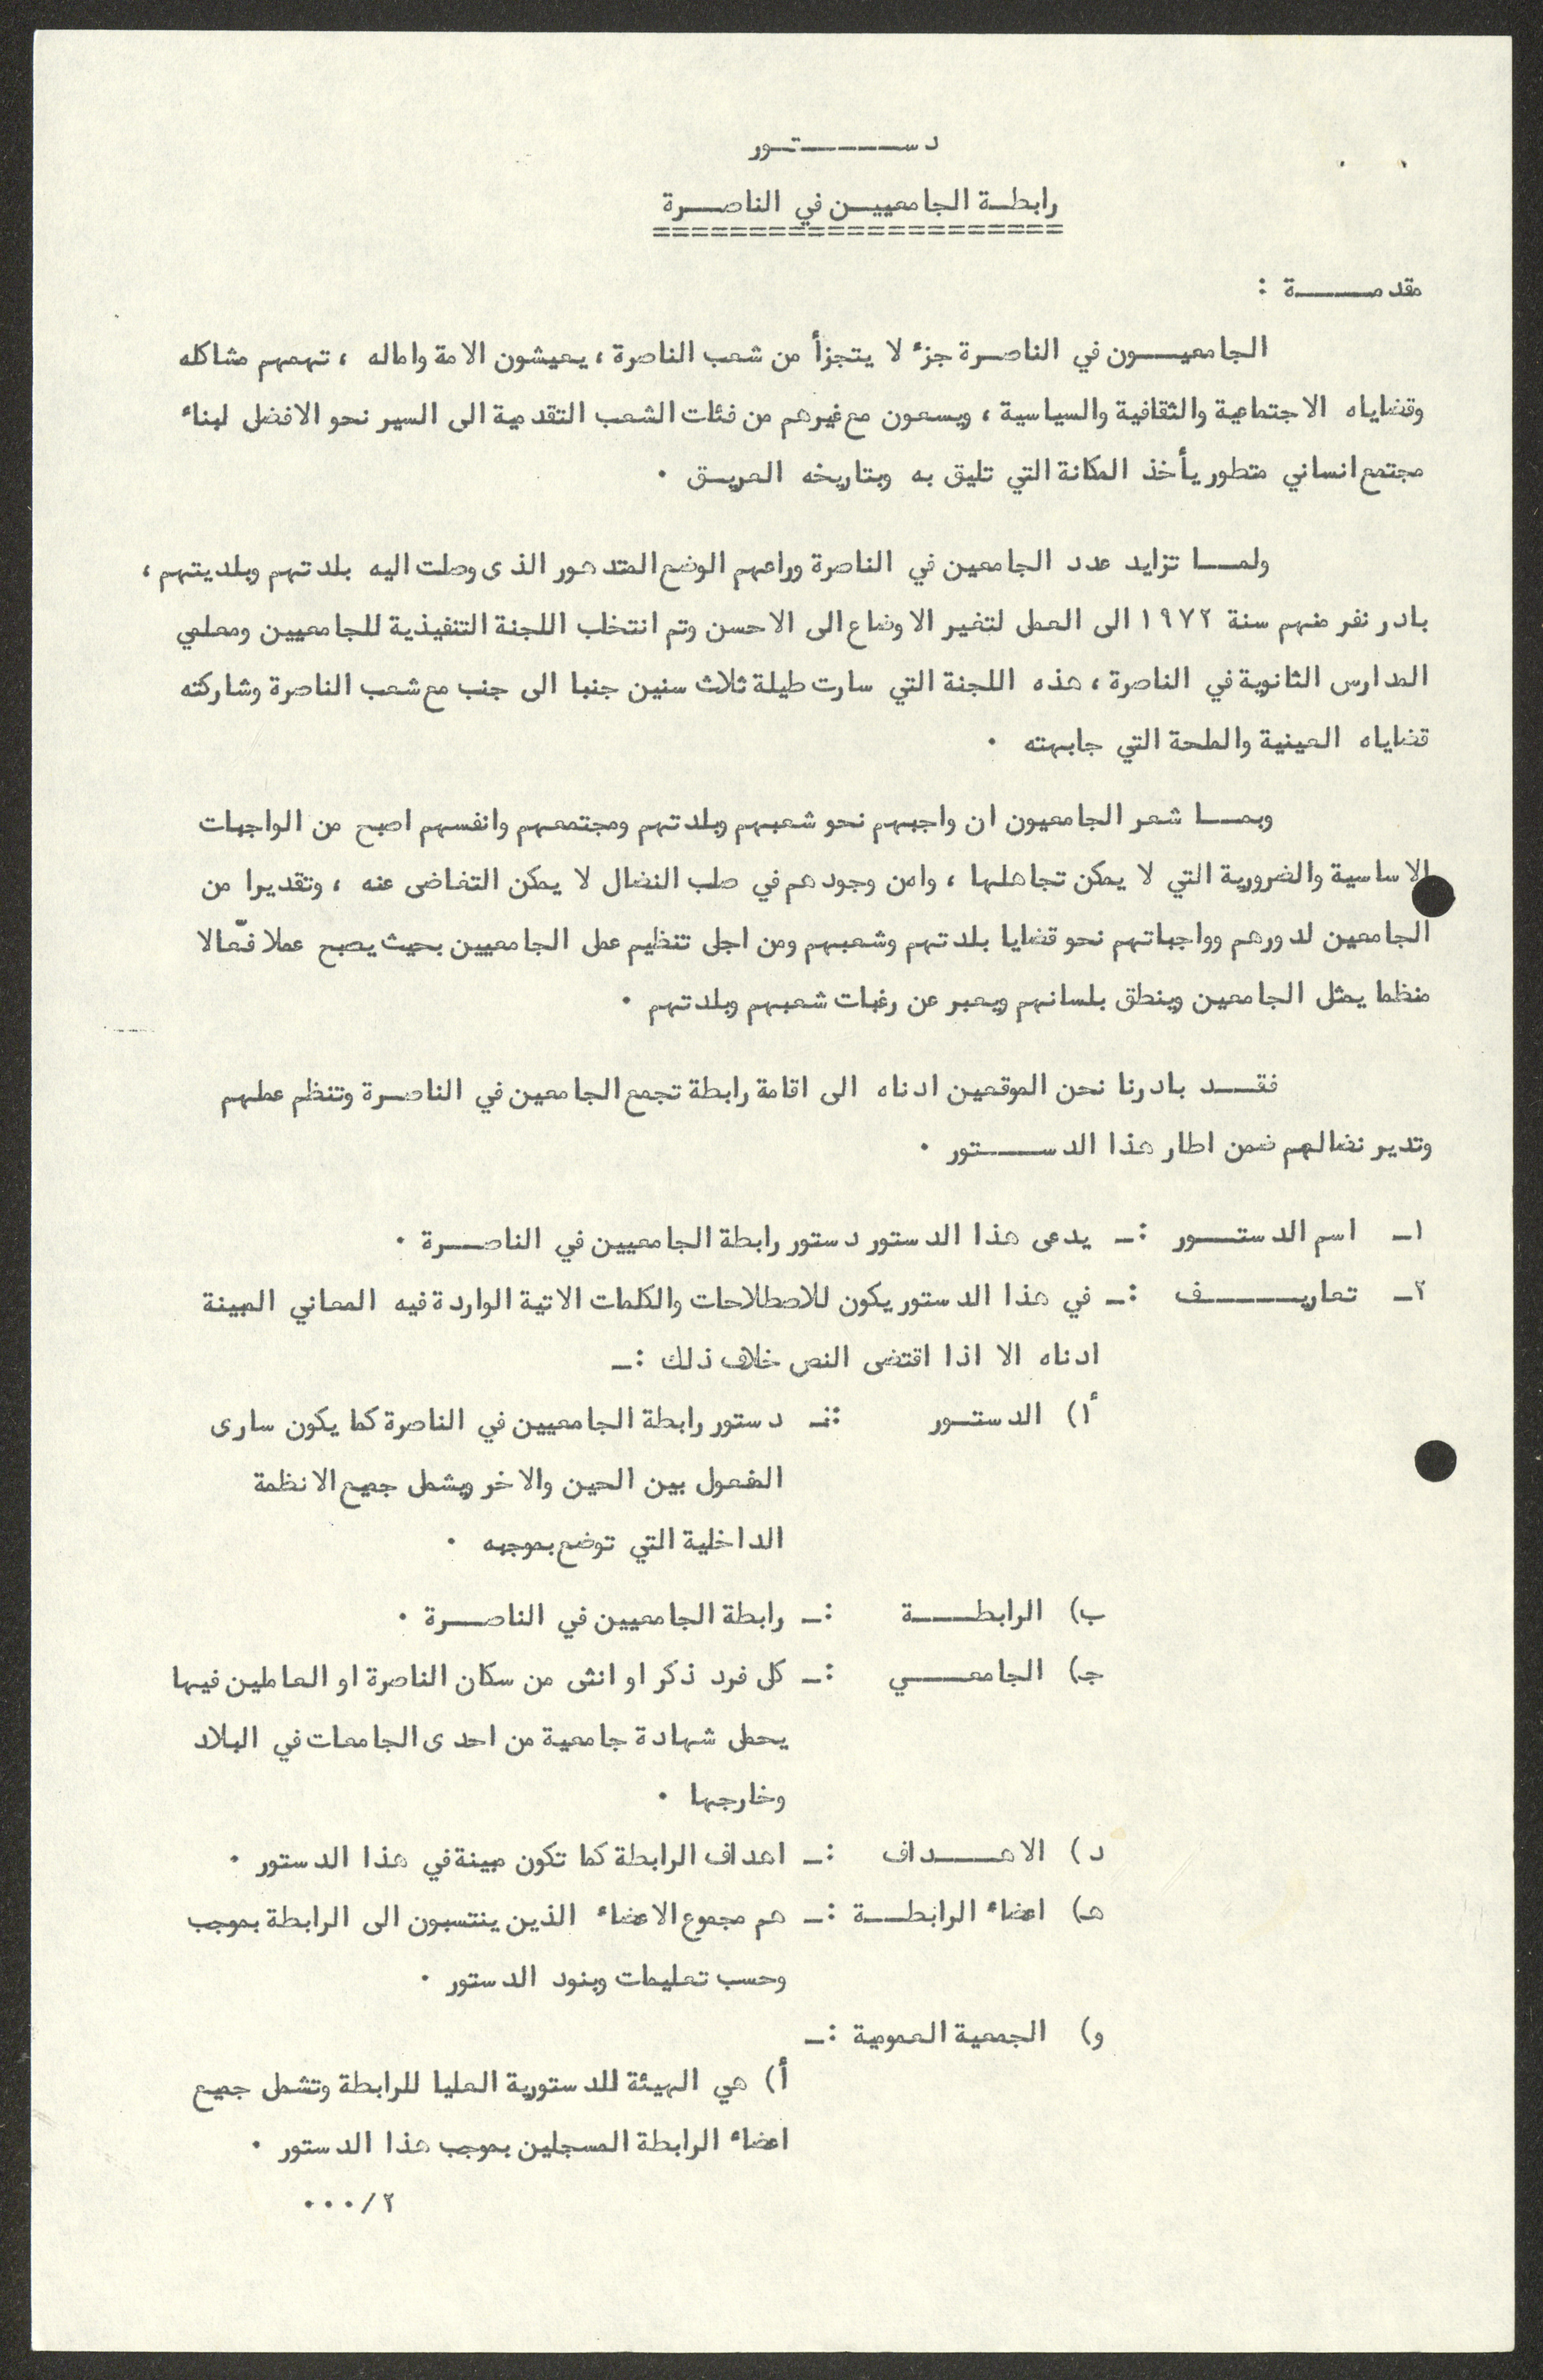 دستور
رابطة الجامعيين في الناصرة
=====================
مقدمة :
الجامعيون في الناصرة جزء لا يتجزأ من شعب الناصرة ، يعيشون الامة واماله ، تهمهم مشاكله
وقضاياه الاجتماعية والثقافية والسياسية ، ويسعون مع غيرهم من فئات الشعب التقدمية الى السير نحو الافضل لبناء
مجتمع انساني متطور يأخذ المكانة التي تليق به وبتاريخه العريق .
ولما تزايد عدد الجامعين في الناصرة وراعهم الوضع المتدهور الذى وصلت اليه بلدتهم وبلديتهم ،
بادر نفر منهم سنة ١٩٧٢ الى العمل لتغير الاوضاع الى الاحسن وتم انتخاب اللجنة التنفيذية للجامعيين ومعلمي
المدارس الثانوية في الناصرة ، هذه اللجنة التي سارت طيلة ثلاث سنين جنبا الى جنب مع شعب الناصرة وشاركته
قضاياه العينية والملحة التي جابهته .
وبما شعر الجامعيون ان واجبهم نحو شعبهم وبلدتهم ومجتمعهم وانفسهم اصبح من الواجبات
الاساسية والضرورية التي لا يمكن تجاهلها ، وامن وجودهم في صلب النضال لا يمكن التغاضى عنه ، وتقديرا من
الجامعين لدورهم وواجباتهم نحو قضايا بلدتهم وشعبهم ومن اجل تنظيم عمل الجامعيين بحيث يصبح عملا فعّالا
منظما يمثل الجامعين وينطق بلسانهم ويعبر عن رغبات شعبهم وبلدتهم .
فقد بادرنا نحن الموقعين ادناه الى اقامة رابطة تجمع الجامعين في الناصرة وتنظم عملهم
وتدير نضالهم ضمن اطار هذا الدستور .
١ـ اسم الدستور :ـ يدعى هذا الدستور دستور رابطة الجامعيين في الناصرة .
٢ـ تعاريف :ـ في هذا الدستور يكون للاصطلاحات والكلمات الاتية الواردة فيه المعاني المبينة
ادناه الا اذا اقتضى النص خلاف ذلك :ـ
أ) الدستور :ـ دستور رابطة الجامعيين في الناصرة كما يكون سارى
المفعول بين الحين والاخر ويشمل جميع الانظمة
الداخلية التي توضع بموجبه .
ب) الرابطة :ـ رابطة الجامعيين في الناصرة .
جـ) الجامعي :ـ كل فرد ذكر او انثى من سكان الناصرة او العاملين فيها
يحمل شهادة جامعية من احدى الجامعات في البلاد
وخارجها .
د) الاهداف :ـ اهداف الرابطة كما تكون مبينة في هذا الدستور .
هـ) اعضاء الرابطة :ـ هم مجموع الاعضاء الذين ينتسبون الى الرابطة بموجب
وحسب تعليمات وبنود الدستور .
و) الجمعية العمومية :ـ
أ) هي الهيئة للدستورية العليا للرابطة وتشمل جميع
اعضاء الرابطة المسجلين بموجب هذا الدستور .
٢/...